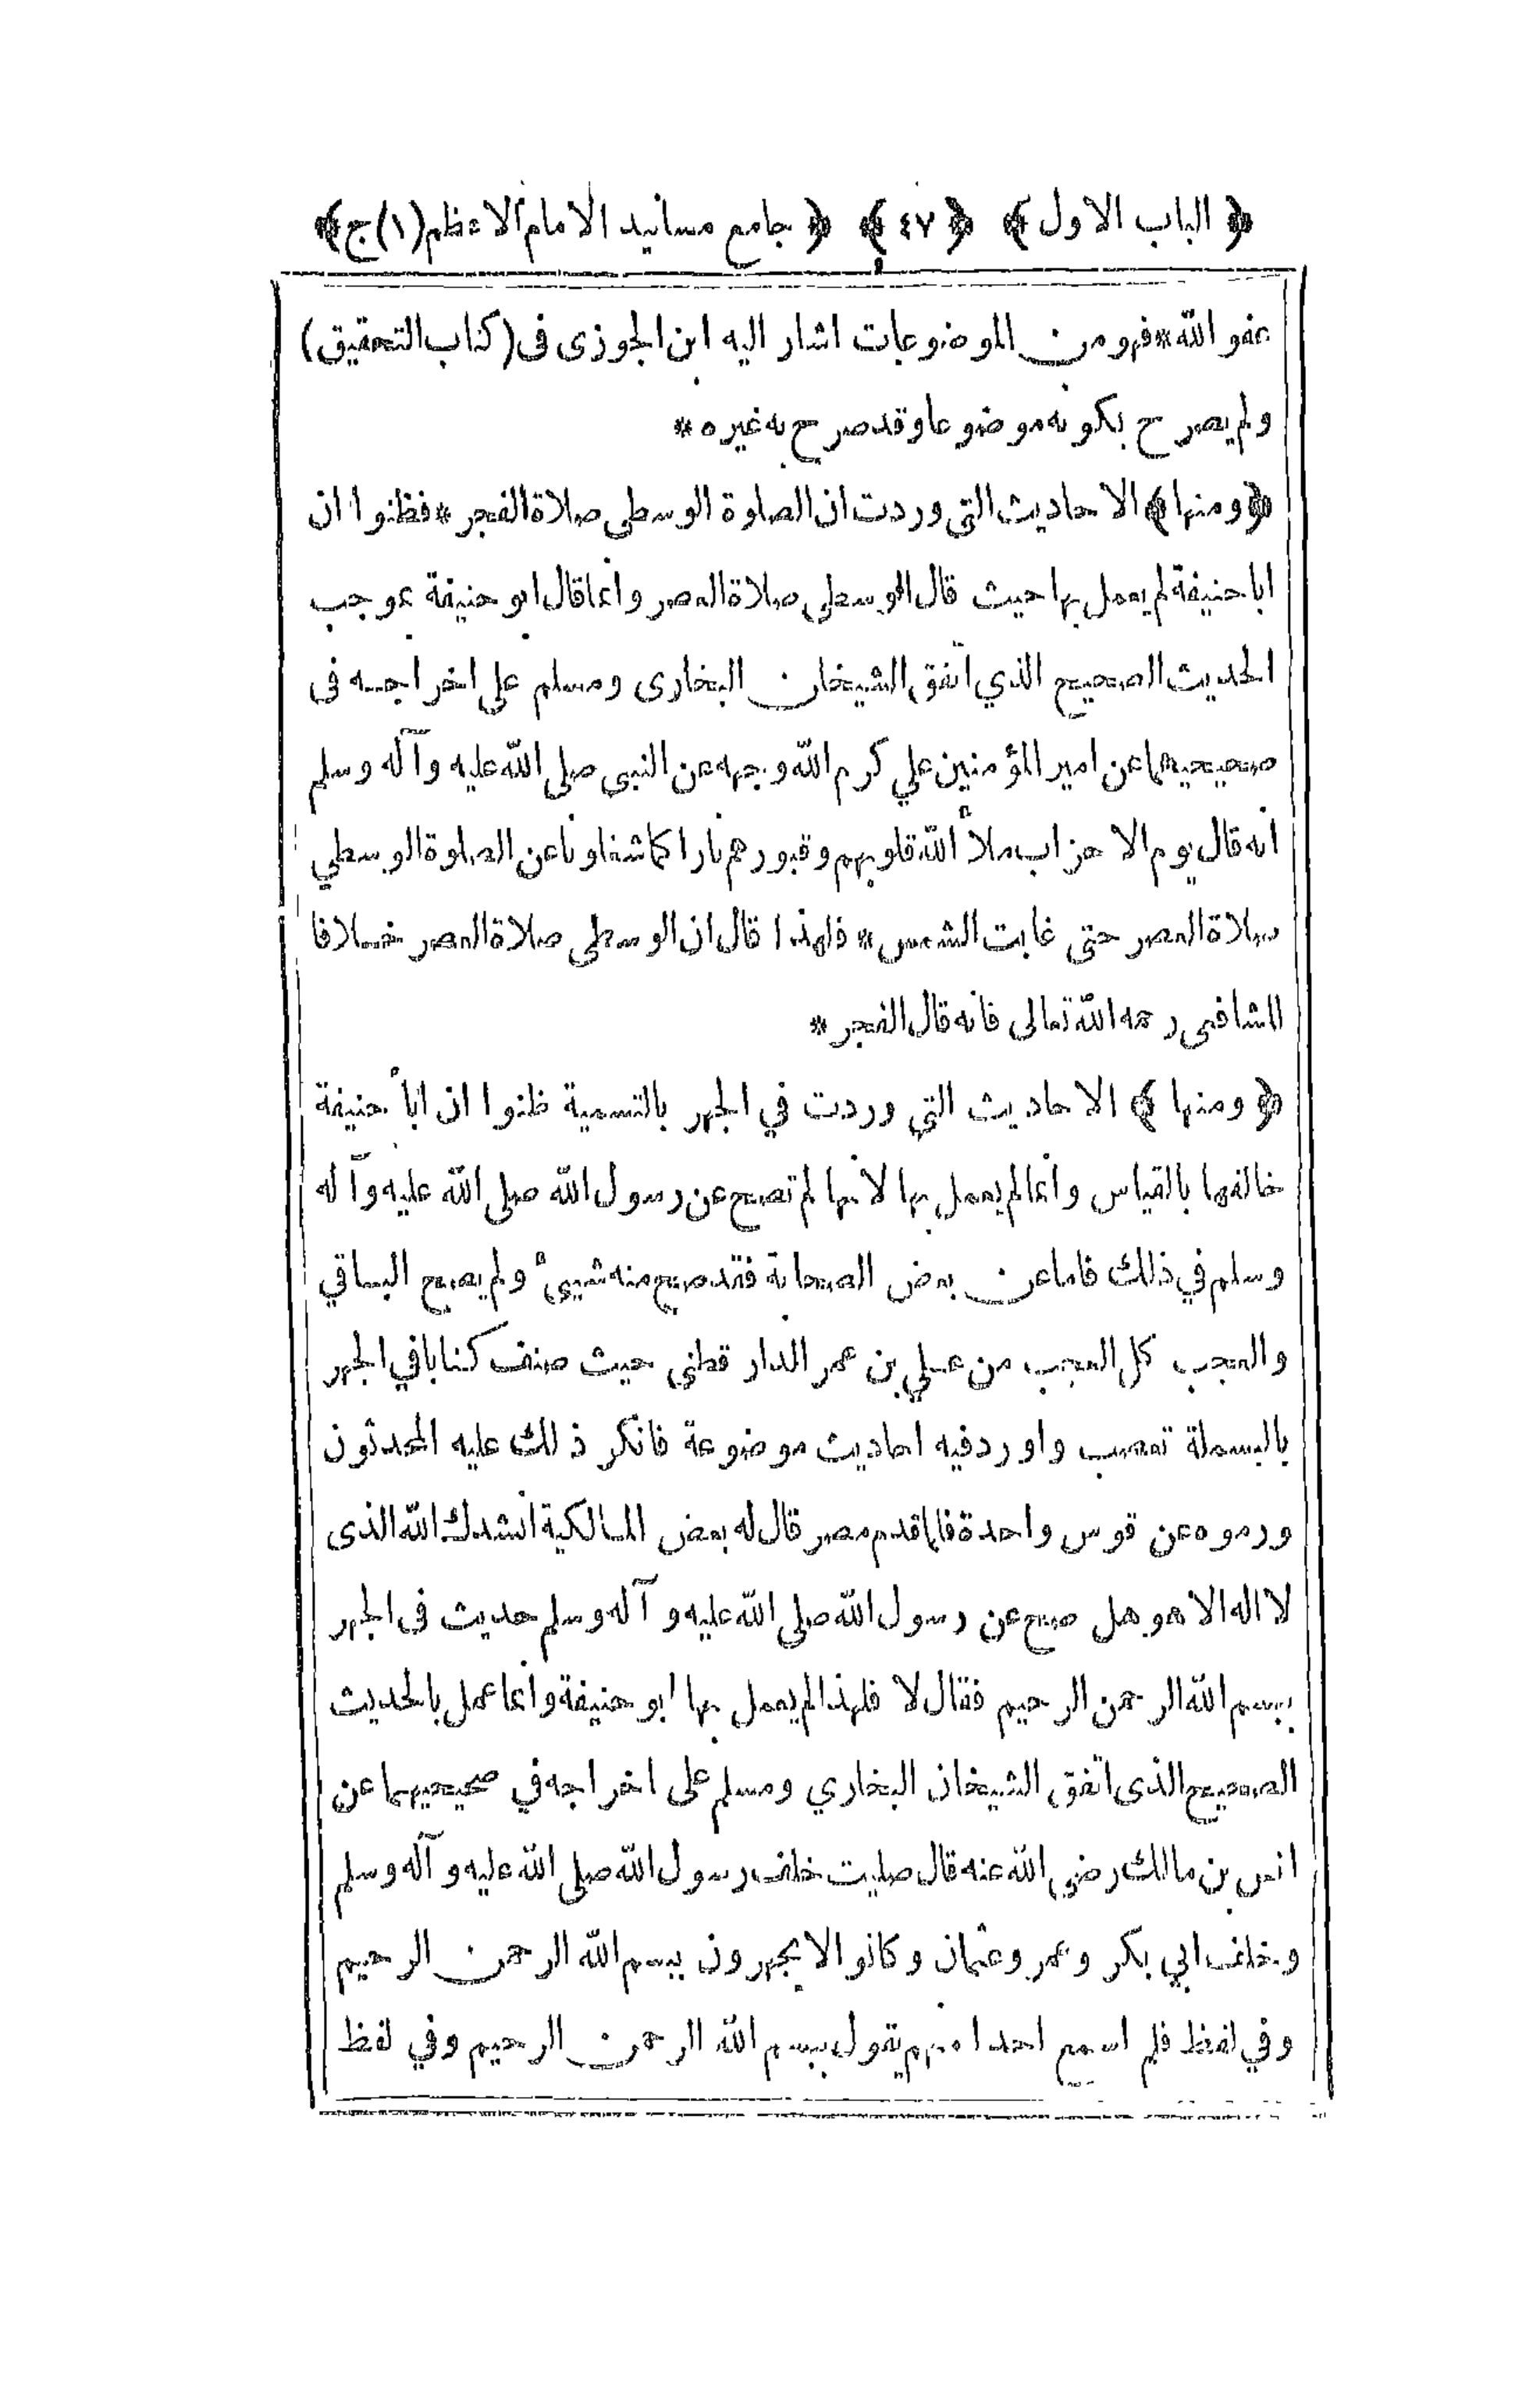 ﴿ الباب الاول ﴾ ﴿ ٤٧ ﴾ ﴿ جامع مسانيد الامام الاعظم (١) ج ﴾
عفو الله * فهو من الموضوعات اشار اليه ابن الجوزى فى (كتاب التحقيق)
ولم يصرح بكونه موضوعا وقد صرح به غيره *
﴿ ومنها ﴾ الاحاديث التى وردت ان الصلوة الوسطى صلاة الفجر * فظنوا ان
ابا حنيفة لم يعمل بها حيث قال الوسطى صلاة العصر وانما قال ابو حنيفة بموجب
الحديث الصحيح الذي اتفق الشيخان البخارى ومسلم على اخراجه فى
صحيحيهما عن امير المؤمنين علي كرم الله وجهه عن النبى صلى الله عليه وآله وسلم
انه قال يوم الاحزاب ملأ الله قلوبهم وقبورهم نارا كما شغلونا عن الصلوة الوسطي
صلاة العصر حتى غابت الشمس * فلهذا قال ان الوسطى صلاة العصر خلافا
للشافعى رحمه الله تعالى فانه قال الفجر *
﴿ ومنها ﴾ الاحاديث التي وردت في الجهر بالتسمية ظنوا ان ابا حنيفة
خالفها بالقياس وانما لم يعمل بها لانها لم تصح عن رسول الله صلى الله عليه وآله
وسلم في ذلك فاما عن بعض الصحابة فقد صح منه شيئ ولم يصح الباقي
والعجب كل العجب من علي بن عمر الدار قطنى حيث صنف كتابا في الجهر
بالبسملة تعصب واورد فيه احاديث موضوعة فانكر ذلك عليه المحدثون
ورموه عن قوس واحدة فلما قدم مصر قال له بعض المالكية انشدك الله الذى
لا اله الا هو هل صح عن رسول الله صلى الله عليه وآله وسلم حديث فى الجهر
ببسم الله الرحمن الرحيم فقال لا فلهذا لم يعمل بها ابو حنيفة وانما عمل بالحديث
الصحيح الذى اتفق الشيخان البخاري ومسلم على اخراجه في صحيحيهما عن
انس بن مالك رضي الله عنه قال صليت خلف رسول الله صلى الله عليه وآله وسلم
وخلف ابي بكر وعمر وعثمان وكانوا لا يجهرون ببسم الله الرحمن الرحيم
وفي لفظ فلم اسمع احدا منهم يقول بسم الله الرحمن الرحيم وفي لفظ